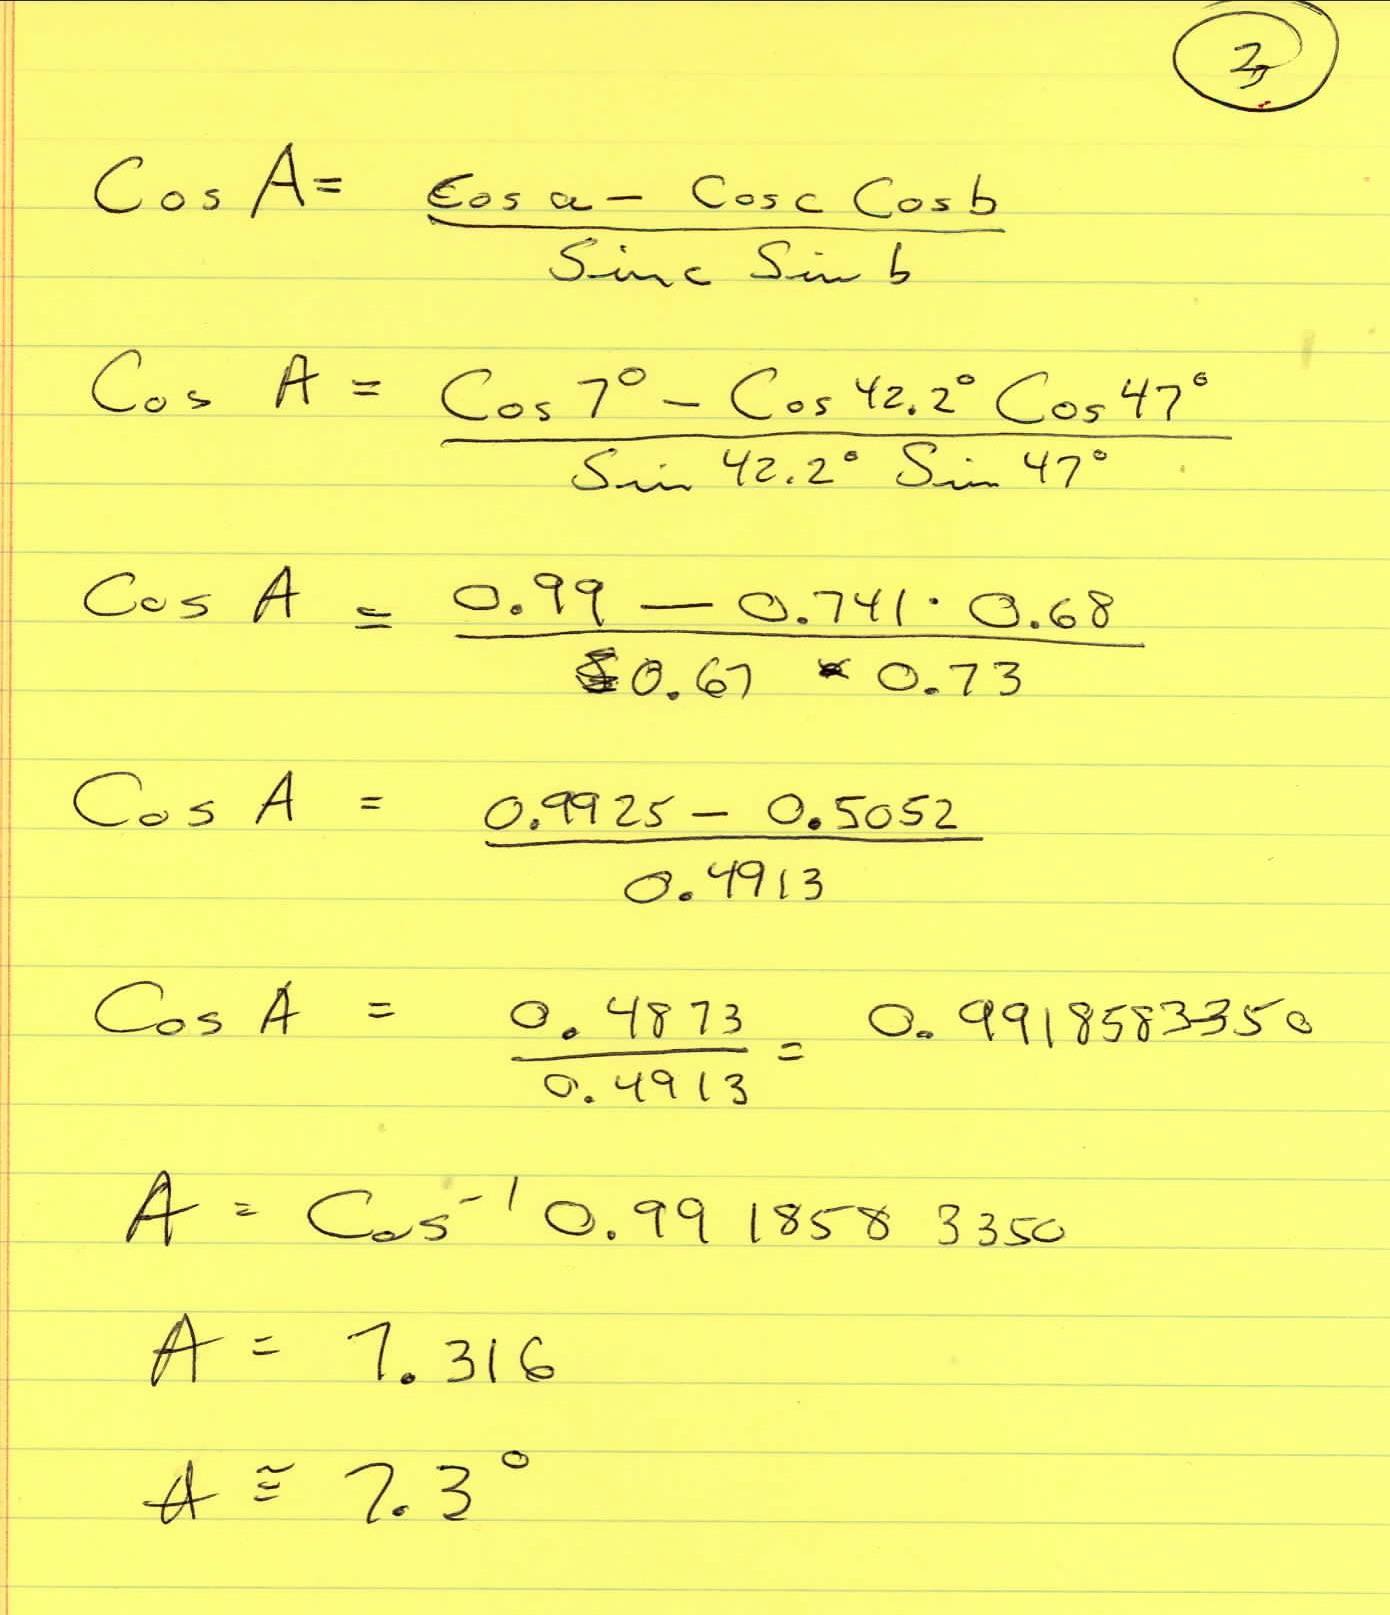 2
Cos A = Cos a - Cos c Cos b
Sin c Sin b
Cos A = Cos 7° - Cos 42.2° Cos 47°
Sin 42.2° Sin 47°
Cos A = 0.99 - 0.741 · 0.68
0.67 * 0.73
Cos A = 0.9925 - 0.5052
0.4913
Cos A = 0.4873 = 0.9918583350
0.4913
A = Cos⁻¹ 0.9918583350
A = 7.316
A ≅ 7.3°